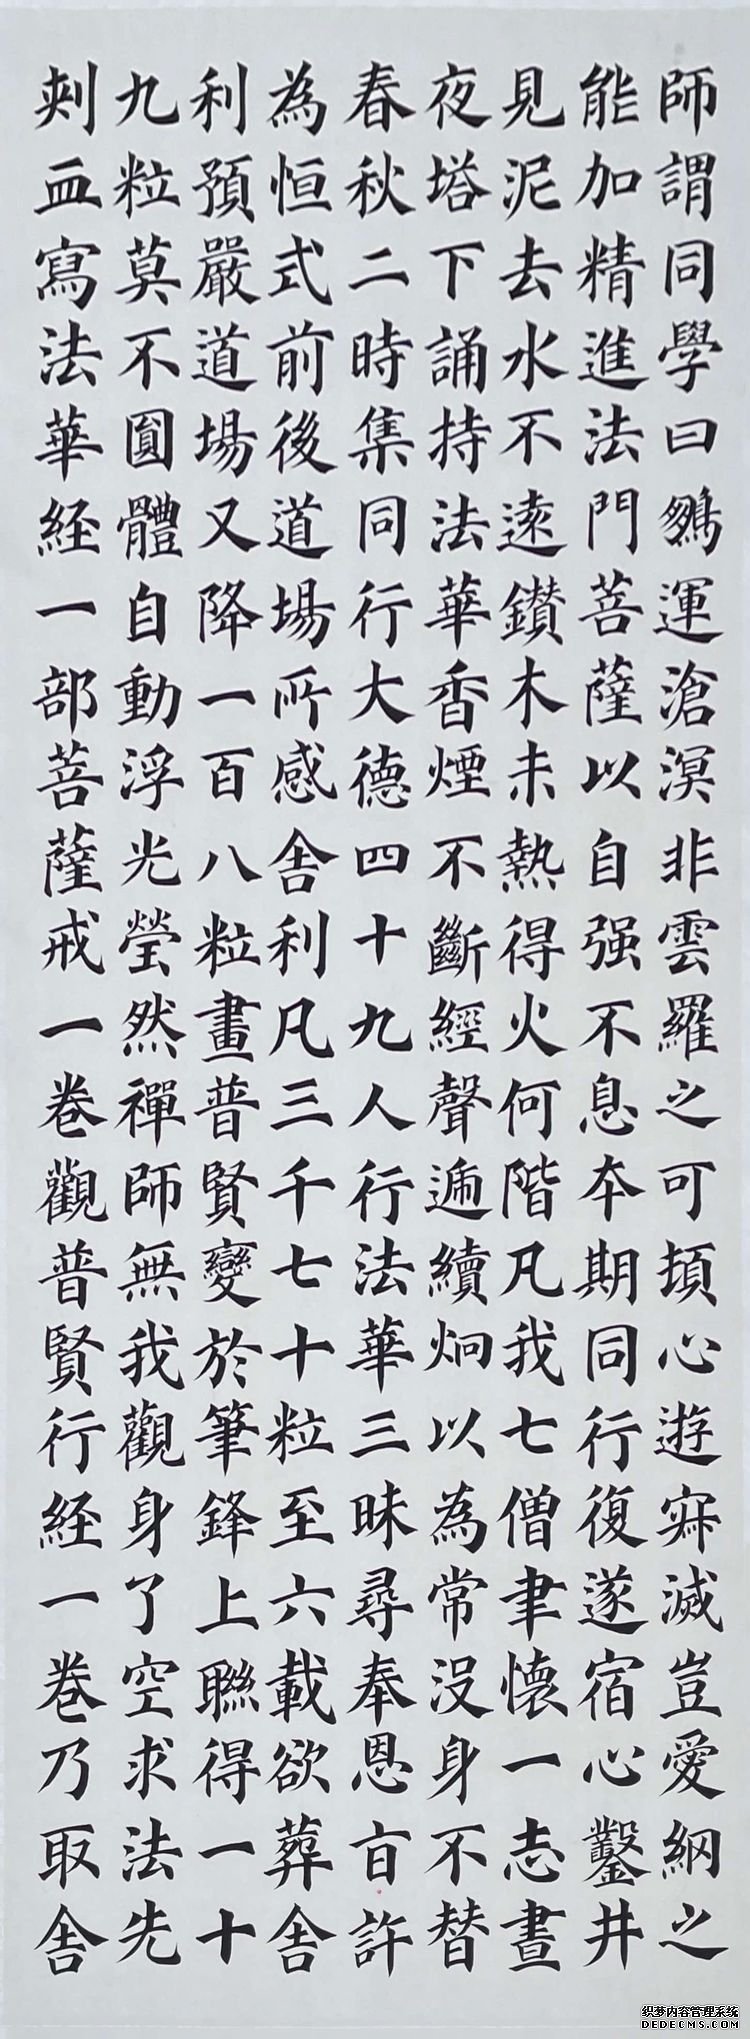 師謂同學曰鵷運滄溟非雲羅之可頓心遊寂滅豈愛網之
能加精進法門菩薩以自强不息本期同行復遂宿心鑿井
見泥去水不遠鑚木未熱得火何階凡我七僧聿懷一志晝
夜塔下誦持法華香煙不斷經聲遞續炯以為常沒身不替
春秋二時集同行大德四十九人行法華三昧尋奉恩旨許
為恒式前後道場所感舍利凡三千七十粒至六載欲葬舍
利預嚴道場又降一百八粒畫普賢變於筆鋒上聯得一十
九粒莫不圓體自動浮光瑩然禪師無我觀身了空求法先
刺血寫法華経一部菩薩戒一卷觀普賢行経一卷乃取舍
织梦内容管理系统
DEDECMS.COM